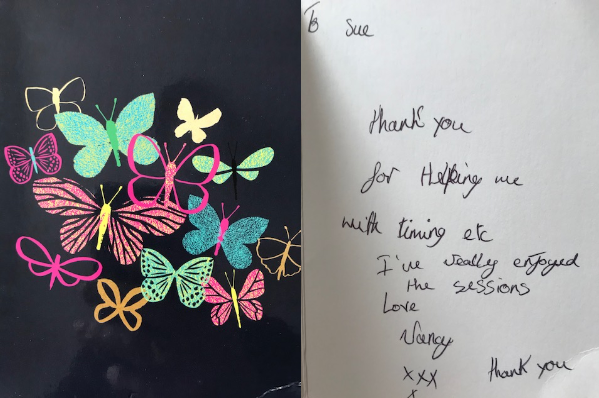 To Sue
Thank you
for Helping me
with timing etc
I've really enjoyed
the sessions
Love
Nancy
xxx thank you
x